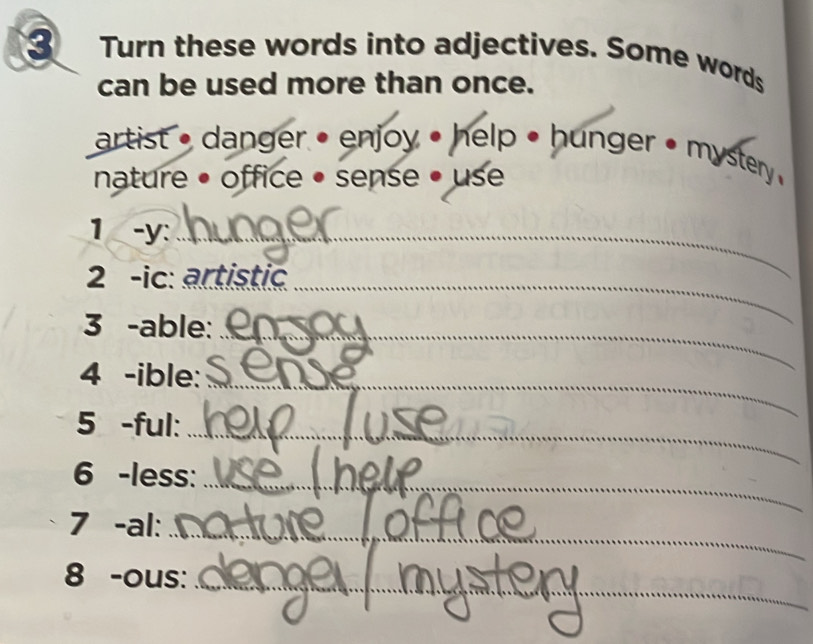 3 Turn these words into adjectives. Some words
can be used more than once.
artist • danger • enjoy • help • hunger • mystery •
nature • office • sense • use
1 -y: hunger
2 -ic: artistic
3 -able: enjoy
4 -ible: sense
5 -ful: help / use
6 -less: use / help
7 -al: nature / office
8 -ous: denger / mystery